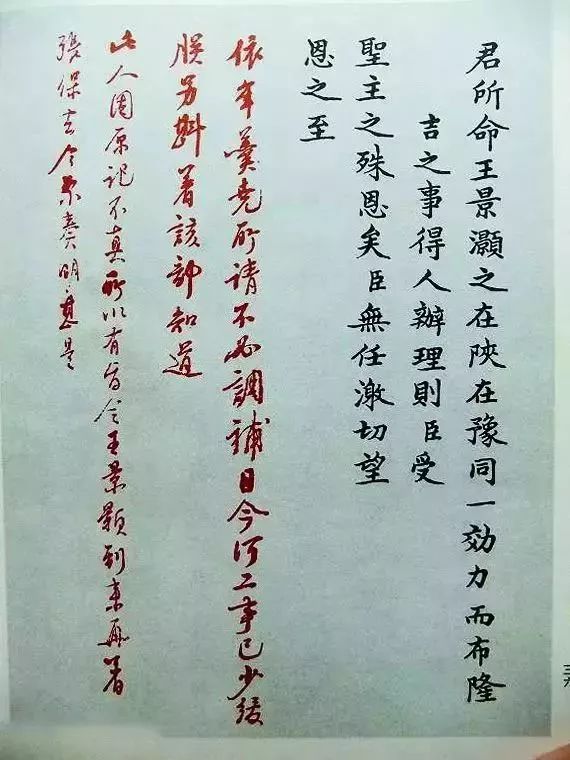 君所命王景灝之在陝在豫同一効力而布隆
吉之事得人辦理則臣受
聖主之殊恩矣臣無任激切望
恩之至
依年羹堯所請不必調補目今河工事已少緩
朕另斟着該部知道
此人因原記不真所以有旨令王景顥到來再着
張保去今系奏明甚是